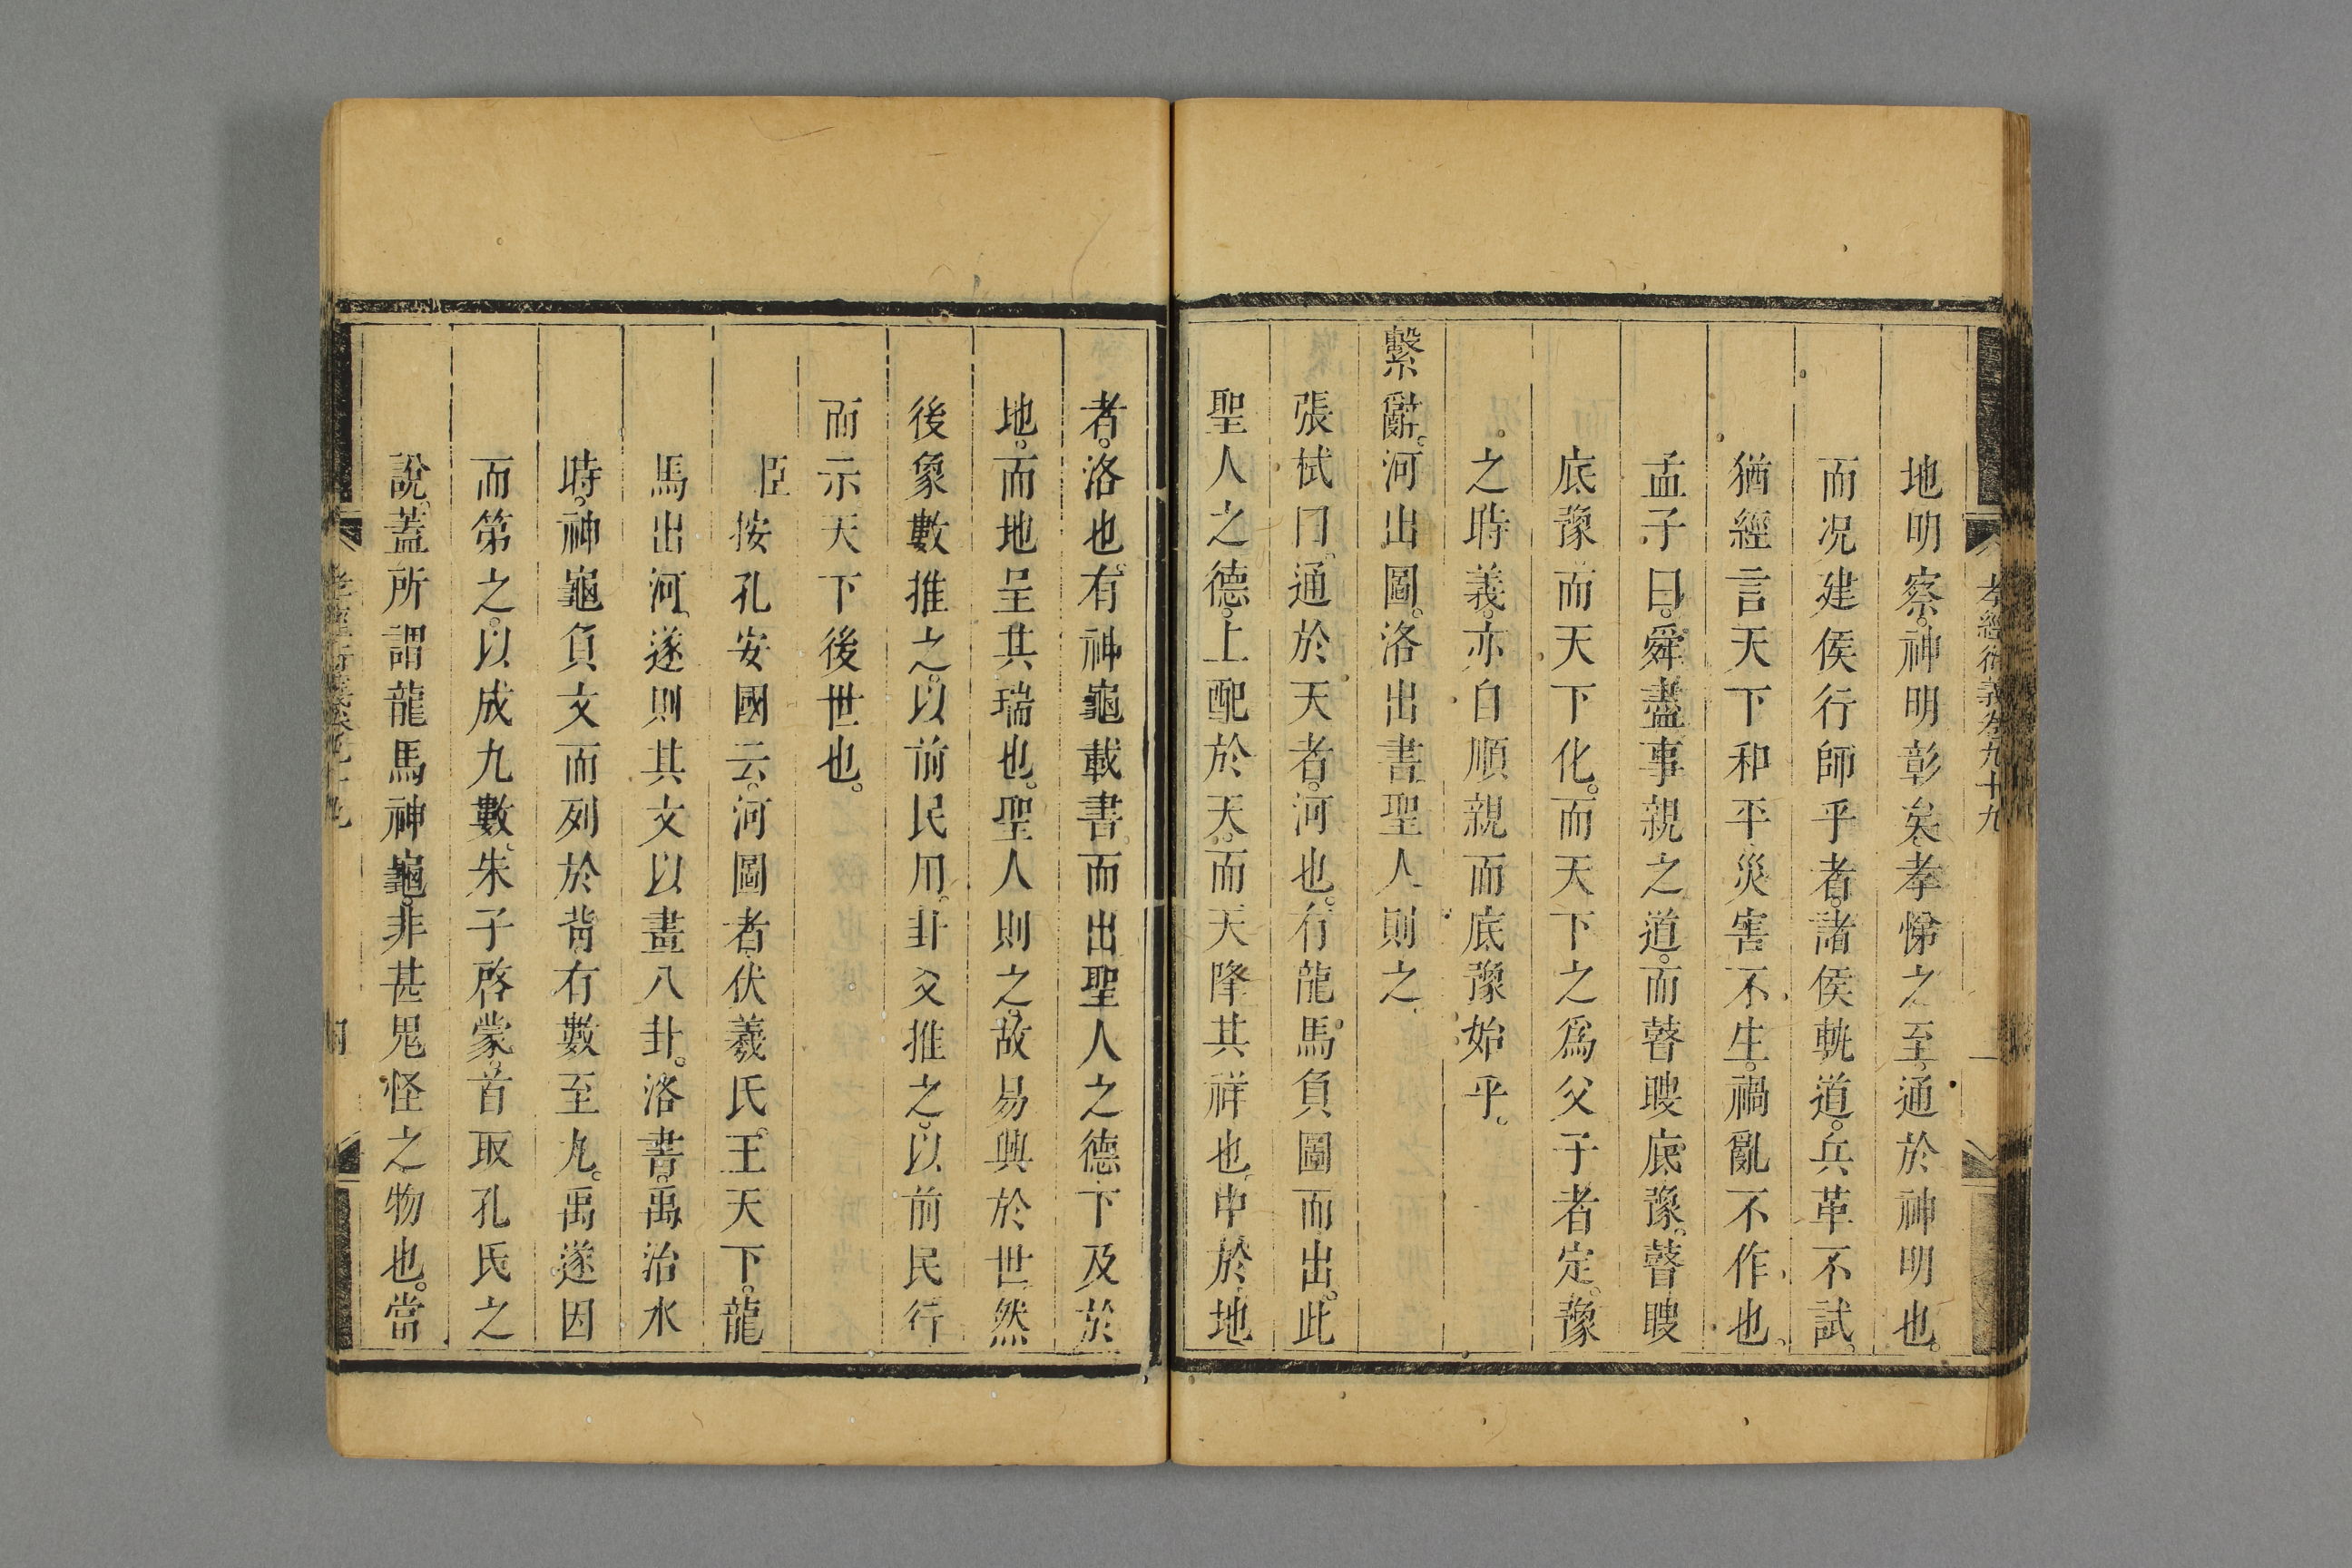 孝經衍義卷九十九
地明察。神明彰矣。孝悌之至。通於神明也。
而况建侯行師乎者。諸侯軌道。兵革不試。
猶經言天下和平。災害不生。禍亂不作也。
孟子曰。舜盡事親之道。而瞽瞍底豫。瞽瞍
底豫而天下化。而天下之爲父子者定。豫
之時義。亦自順親而底豫始乎。
繫辭。河出圖。洛出書聖人則之
張栻曰。通於天者。河也。有龍馬負圖而出。此
聖人之德。上配於天。而天降其祥也。中於地
者。洛也。有神龜載書。而出聖人之德下及於
地。而地呈其瑞也。聖人則之。故易興於世然
後象數推之。以前民用。卦爻推之。以前民行
而示天下後世也。
臣按孔安國云。河圖者伏羲氏。王天下。龍
馬出河。遂則其文以畫八卦。洛書。禹治水
時。神龜負文而列於背有數至九。禹遂因
而第之。以成九數。朱子啓蒙。首取孔氏之
說。蓋所謂龍馬神龜。非甚鬼怪之物也。當